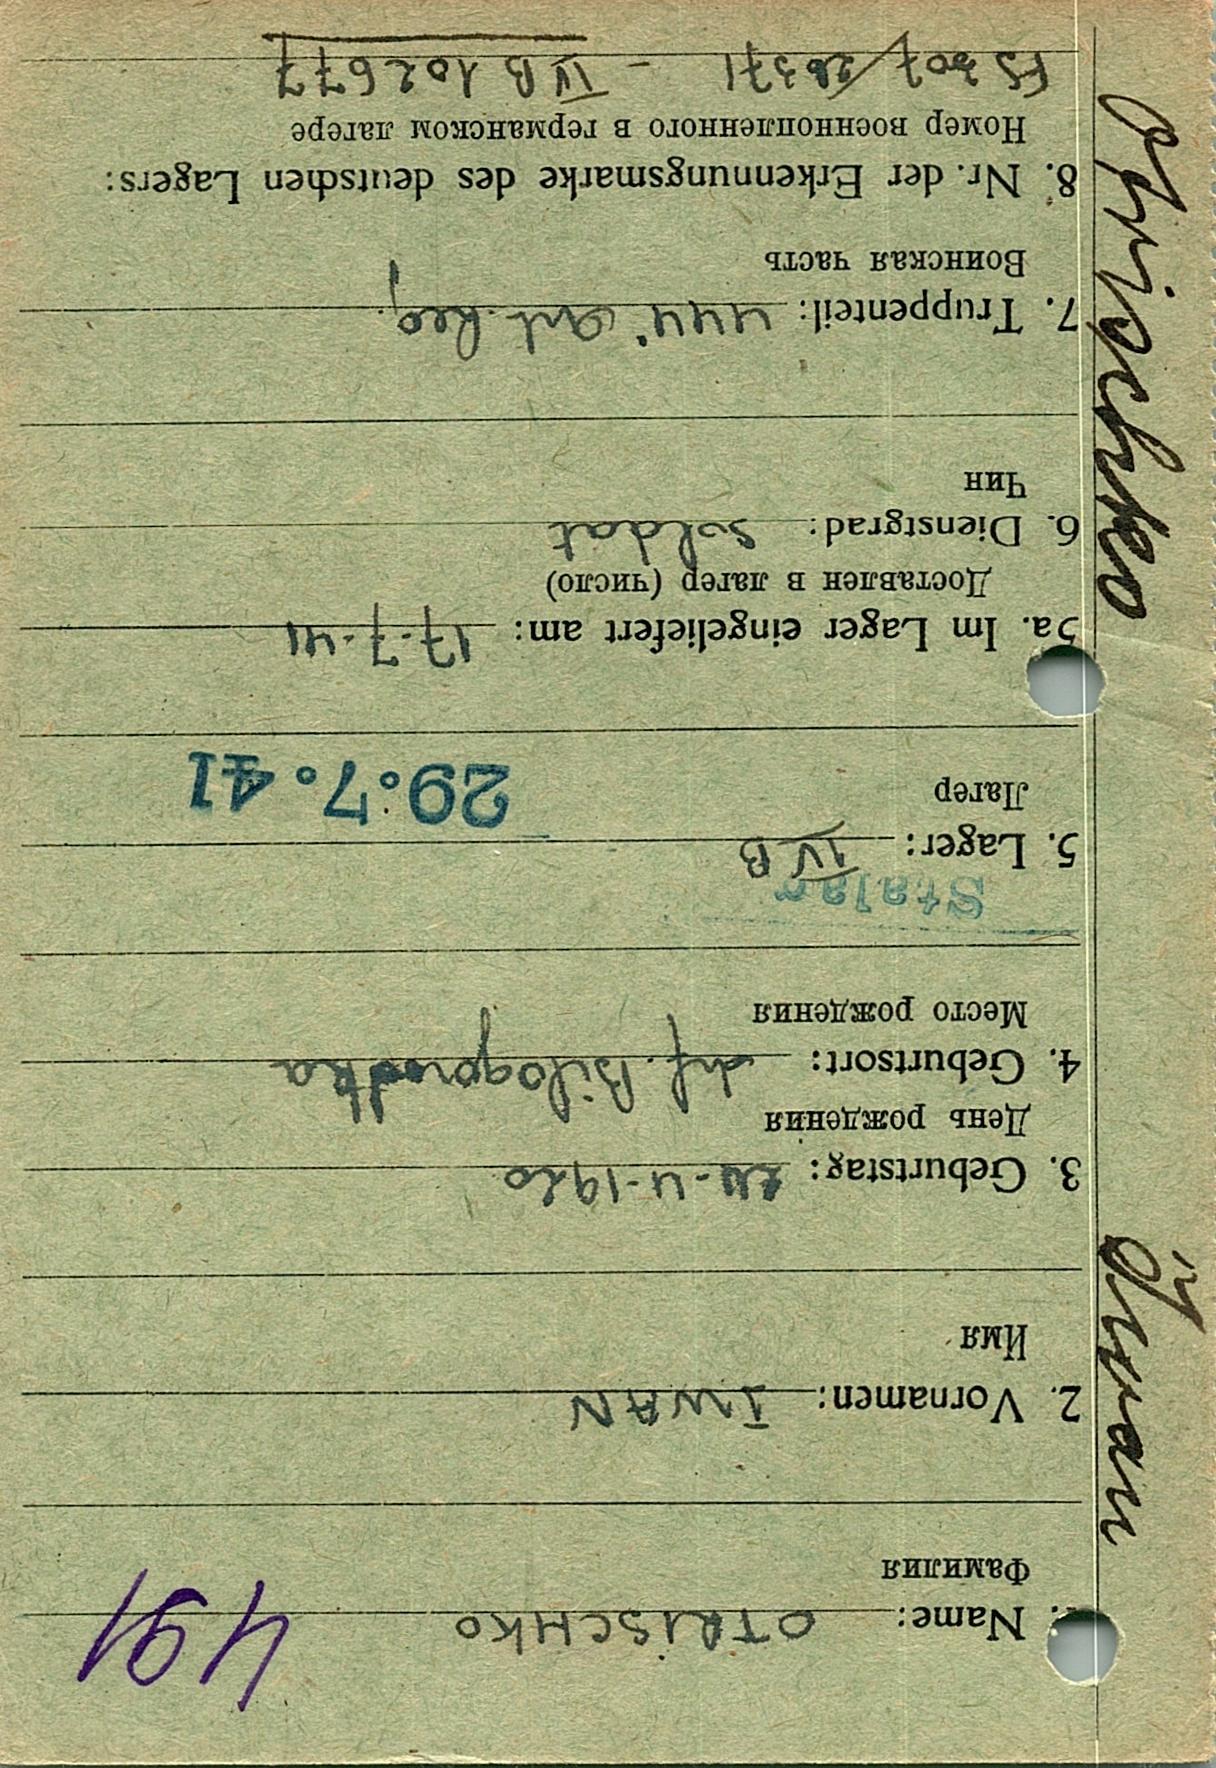 491
1. Name: OTRISCHKO
Фамилия
2. Vornamen: IWAN
Имя
3. Geburtstag: 24-4-1920
День рождения
4. Geburtsort: drf. Bilogorodka
Место рождения
Stalag
5. Lager: IV B
Лагер
29.7.41
5a. Im Lager eingeliefert am: 17-7-41
Доставлен в лагер (число)
6. Dienstgrad: Soldat
Чин
7. Truppenteil: 444. Art. Reg.
Воинская часть
8. Nr. der Erkennungsmarke des deutschen Lagers:
Номер военнопленного в германском лагере
FS 307/28371 - IV B 102677
Otrischko Iwan